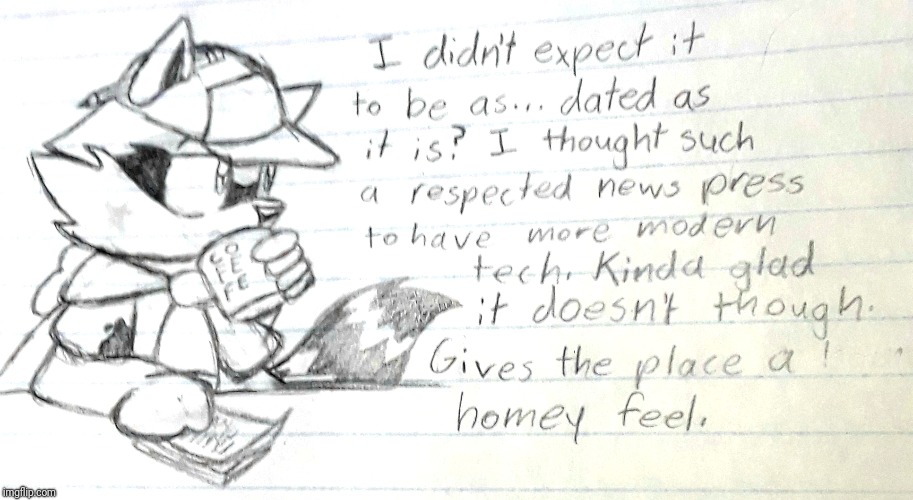 I didn't expect it
to be as... dated as
it is? I thought such
a respected news press
to have more modern
tech. Kinda glad
it doesn't though.
Gives the place a
homey feel.
COFFEE
imgflip.com